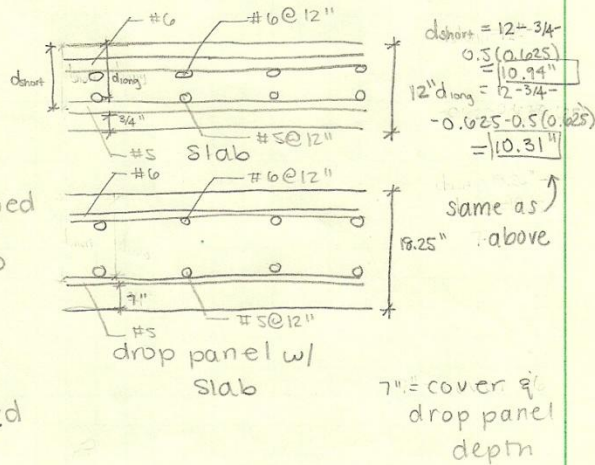 #6
#6@12"
dshort
dlong
3/4"
#5
Slab
#5@12"
12"
dshort = 12-3/4-
0.5(0.625)
= 10.94"
dlong = 12-3/4-
-0.625-0.5(0.625)
= 10.31"
same as
above
#6
#6@12"
18.25"
7"
#5
#5@12"
drop panel w/
Slab
7" = cover &
drop panel
depth